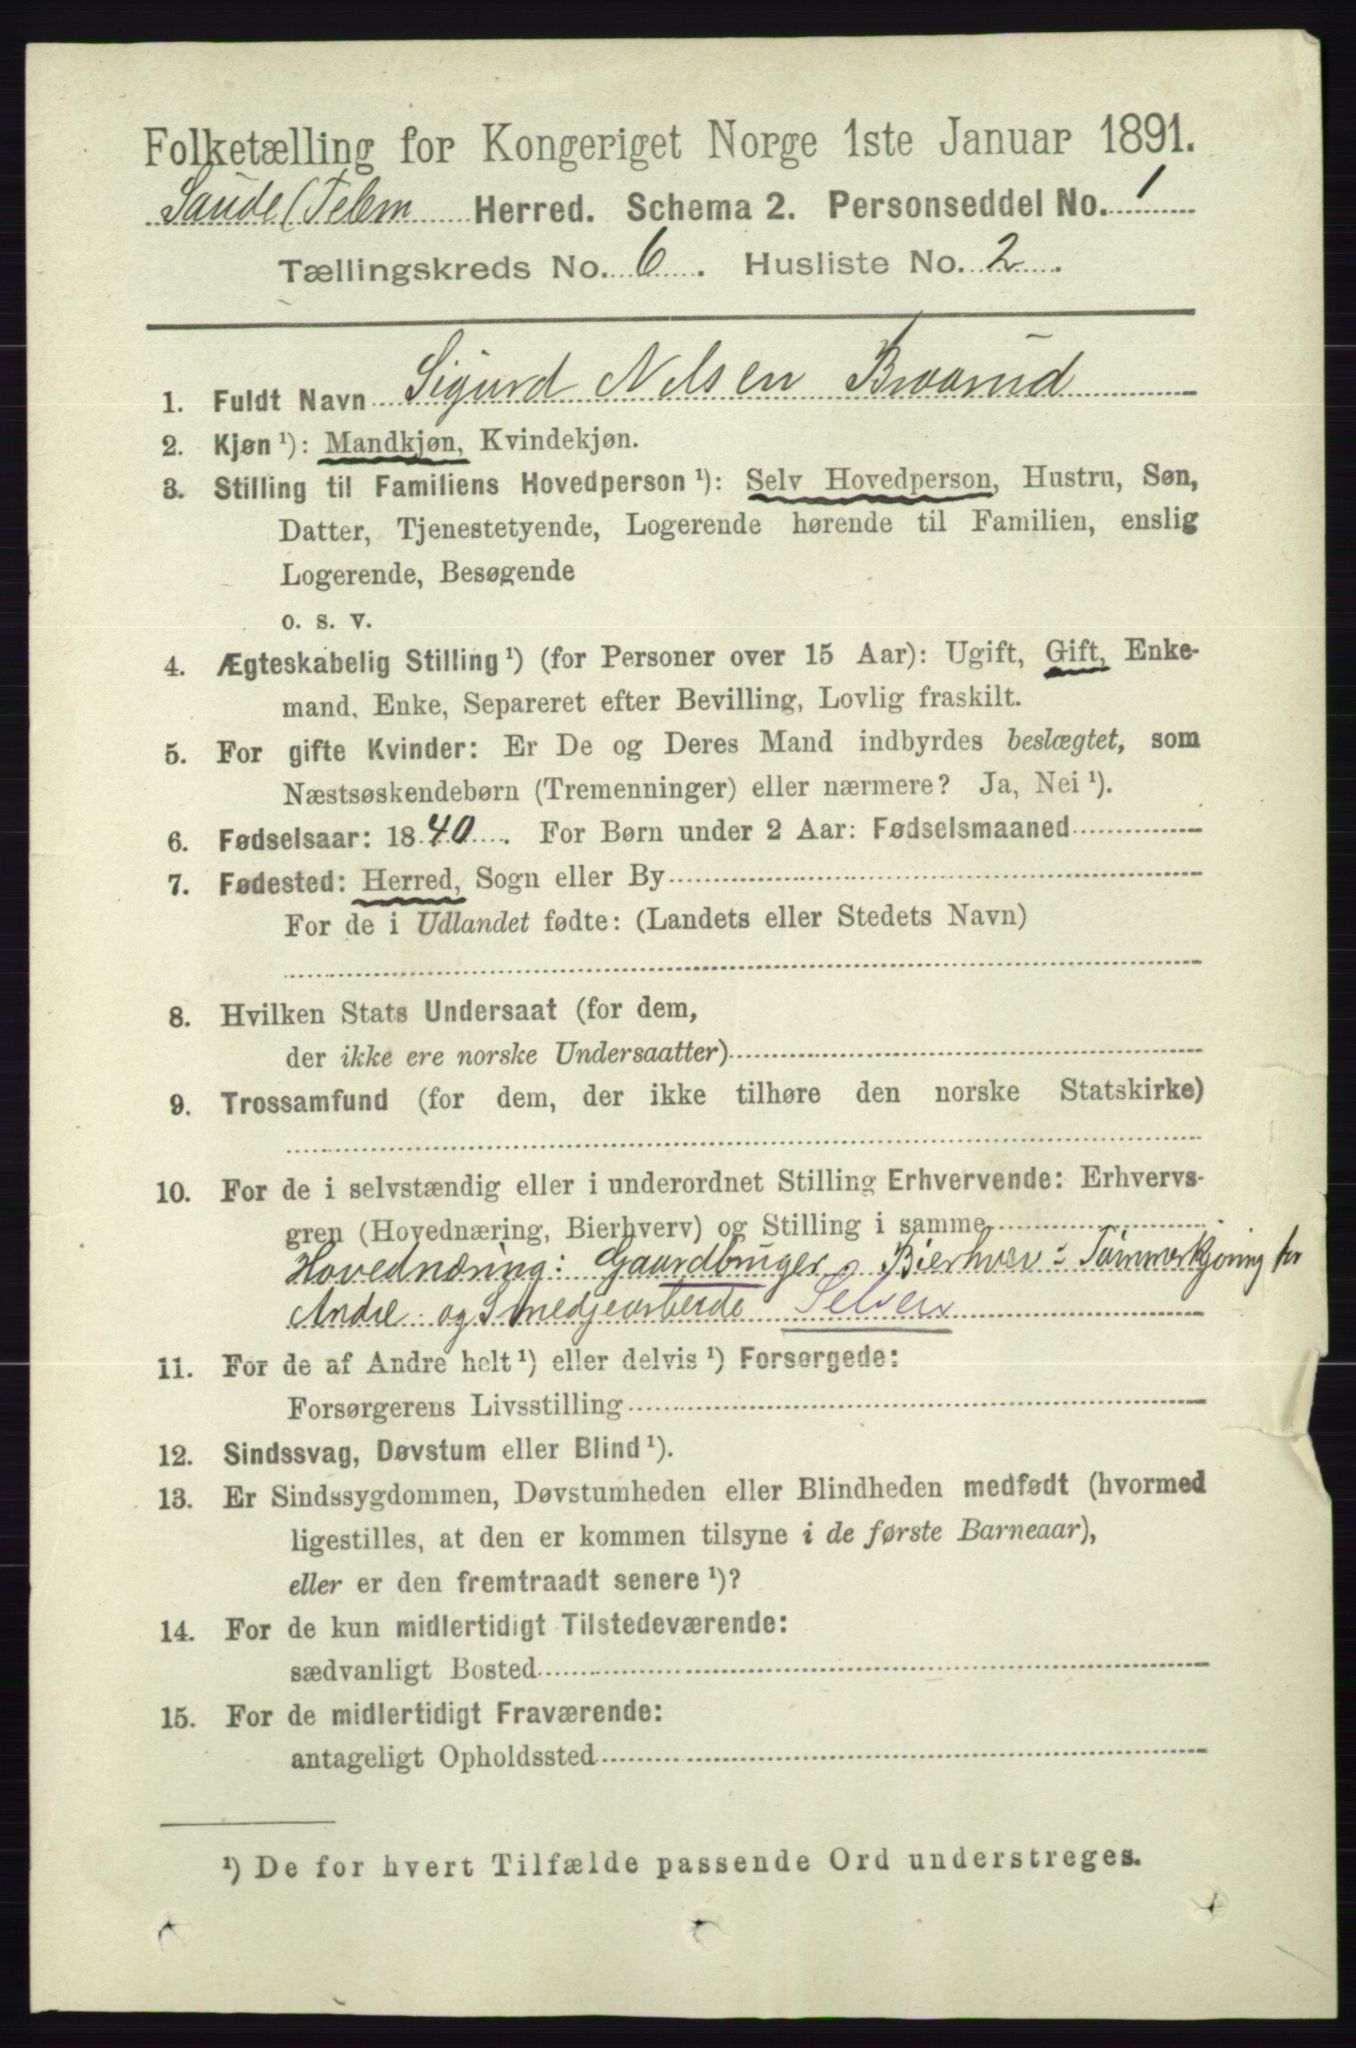 Folketælling for Kongeriget Norge 1ste Januar 1891.
Saude (Telem Herred. Schema 2. Personseddel No. 1
Tællingskreds No. 6. Husliste No. 2.
1. Fuldt Navn Sigurd Nelsen Braarud
2. Kjøn ¹): Mandkjøn, Kvindekjøn.
3. Stilling til Familiens Hovedperson ¹): Selv Hovedperson, Hustru, Søn,
Datter, Tjenestetyende, Logerende hørende til Familien, enslig
Logerende, Besøgende
o. s. v.
4. Ægteskabelig Stilling ¹) (for Personer over 15 Aar): Ugift, Gift, Enke-
mand, Enke, Separeret efter Bevilling, Lovlig fraskilt.
5. For gifte Kvinder: Er De og Deres Mand indbyrdes beslægtet, som
Næstsøskendebørn (Tremenninger) eller nærmere? Ja, Nei ¹).
6. Fødselsaar: 1840. For Børn under 2 Aar: Fødselsmaaned
7. Fødested: Herred, Sogn eller By
For de i Udlandet fødte: (Landets eller Stedets Navn)
8. Hvilken Stats Undersaat (for dem,
der ikke ere norske Undersaatter)
9. Trossamfund (for dem, der ikke tilhøre den norske Statskirke)
10. For de i selvstændig eller i underordnet Stilling Erhvervende: Erhvervs-
gren (Hovednæring, Bierhverv) og Stilling i samme
Hovednæring: Gaardbruger, Bierhverv: Tømmerkjøring for
Andre og Smedjearbeide Selveier
11. For de af Andre helt ¹) eller delvis ¹) Forsørgede:
Forsørgerens Livsstilling
12. Sindssvag, Døvstum eller Blind ¹).
13. Er Sindssygdommen, Døvstumheden eller Blindheden medfødt (hvormed
ligestilles, at den er kommen tilsyne i de første Barneaar),
eller er den fremtraadt senere ¹)?
14. For de kun midlertidigt Tilstedeværende:
sædvanligt Bosted
15. For de midlertidigt Fraværende:
antageligt Opholdssted
¹) De for hvert Tilfælde passende Ord understreges.